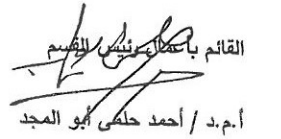 القائم بأعمال رئيس القسم
أ.م.د / أحمد حلمى أبو المجد